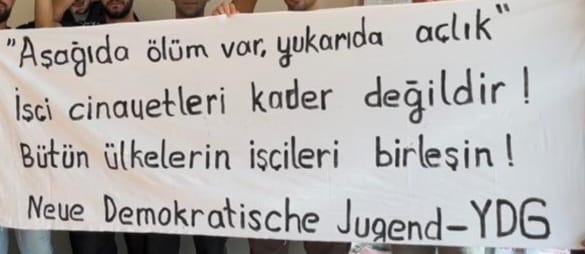 "Aşağıda ölüm var, yukarıda açlık"
İşçi cinayetleri kader değildir!
Bütün ülkelerin işçileri birleşin!
Neue Demokratische Jugend-YDG